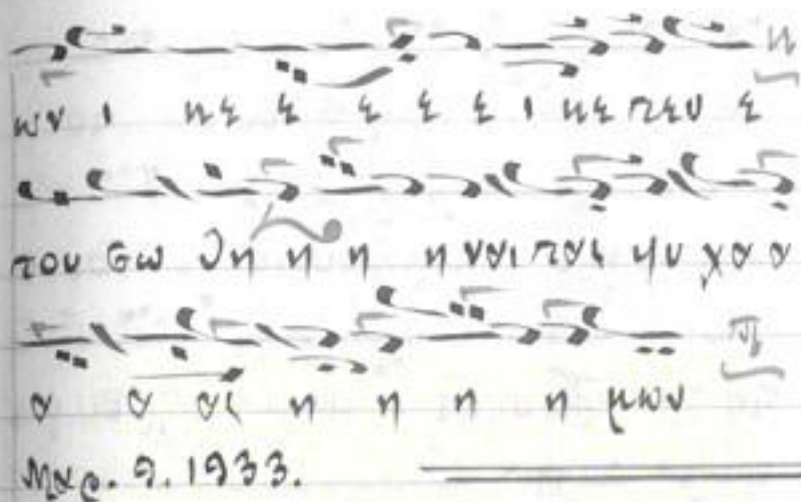 ων ι κε ε ε ε ε ι κε τευ ε
του σω θη η η η ναι τας ψυ χα α
α α ας η η η η μων
Μαρ. 9. 1933.